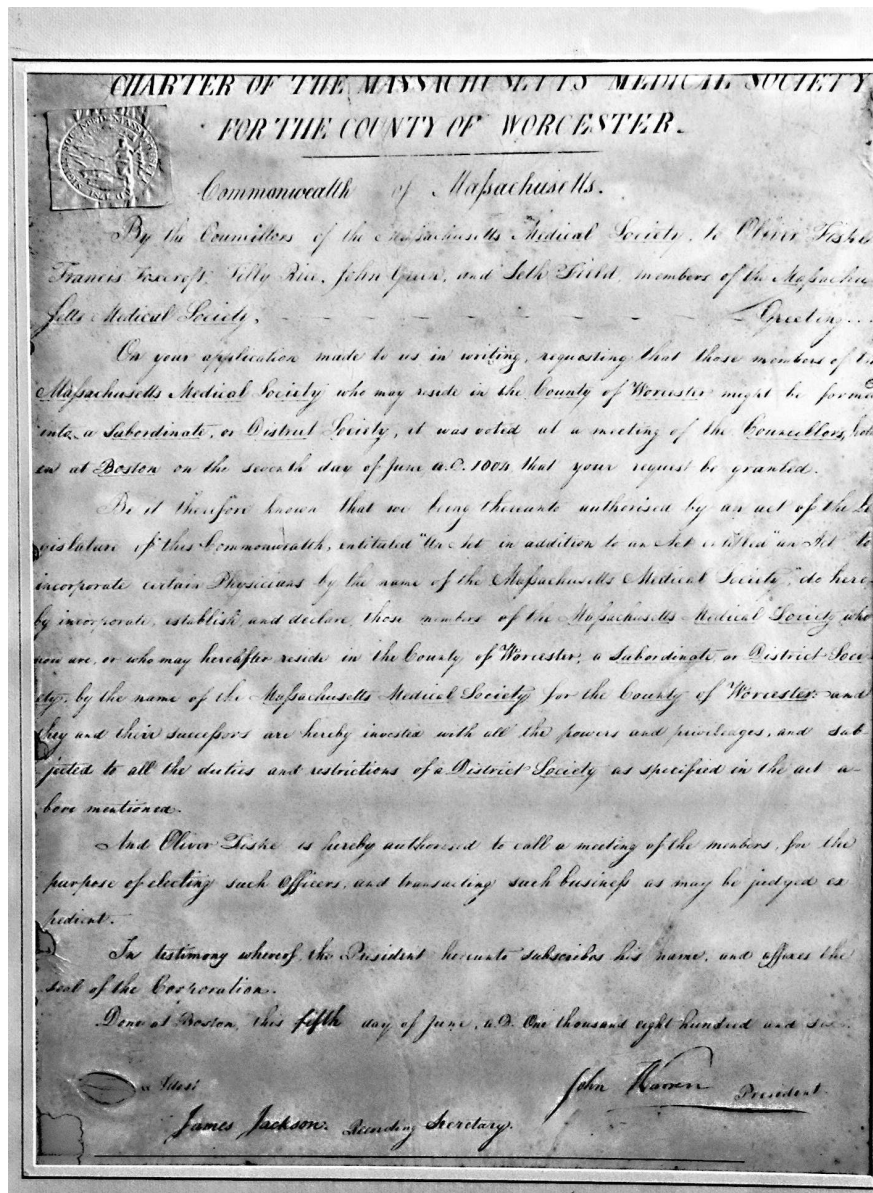 CHARTER OF THE MASSACHUSETTS MEDICAL SOCIETY
FOR THE COUNTY OF WORCESTER.
Commonwealth of Maſsachusetts.
By the Councillors of the Maſsachusetts Medical Society, to Oliver Fiske
Francis Foxcroft, Tilly Rice, John Green, and Seth Field, members of the Maſsachu
setts Medical Society, Greeting
On your application made to us in writing, requesting that those members of the
Maſsachusetts Medical Society who may reside in the County of Worcester might be formed
into a Subordinate, or District Society, it was voted at a meeting of the Councillors,
en at Boston on the seventh day of June A.D. 1804 that your request be granted.
Be it therefore known that we being thereunto authorised by an act of the Le
gislature of this Commonwealth, intituled "An Act in addition to an Act entitled "an Act to
incorporate certain Physicians by the name of the Maſsachusetts Medical Society," do here
by incorporate, establish, and declare, those members of the Maſsachusetts Medical Society who
now are, or who may hereafter reside in the County of Worcester, a Subordinate or District Soci
ety, by the name of the Maſsachusetts Medical Society for the County of Worcester: and
they and their succeſsors are hereby invested with all the powers and privileages, and sub-
jected to all the duties and restrictions of a District Society as specified in the act a-
bove mentioned.
And Oliver Fiske is hereby authorised to call a meeting of the members, for the
purpose of electing such Officers, and transacting such busineſs as may be judged ex
pedient.
In testimony whereof, the President hereunto subscribes his name, and affixes the
seal of the Corporation.
Done at Boston, this fifth day of June, A.D. One thousand eight hundred and six.
Attest
John Warren President.
James Jackson. Recording Secretary.